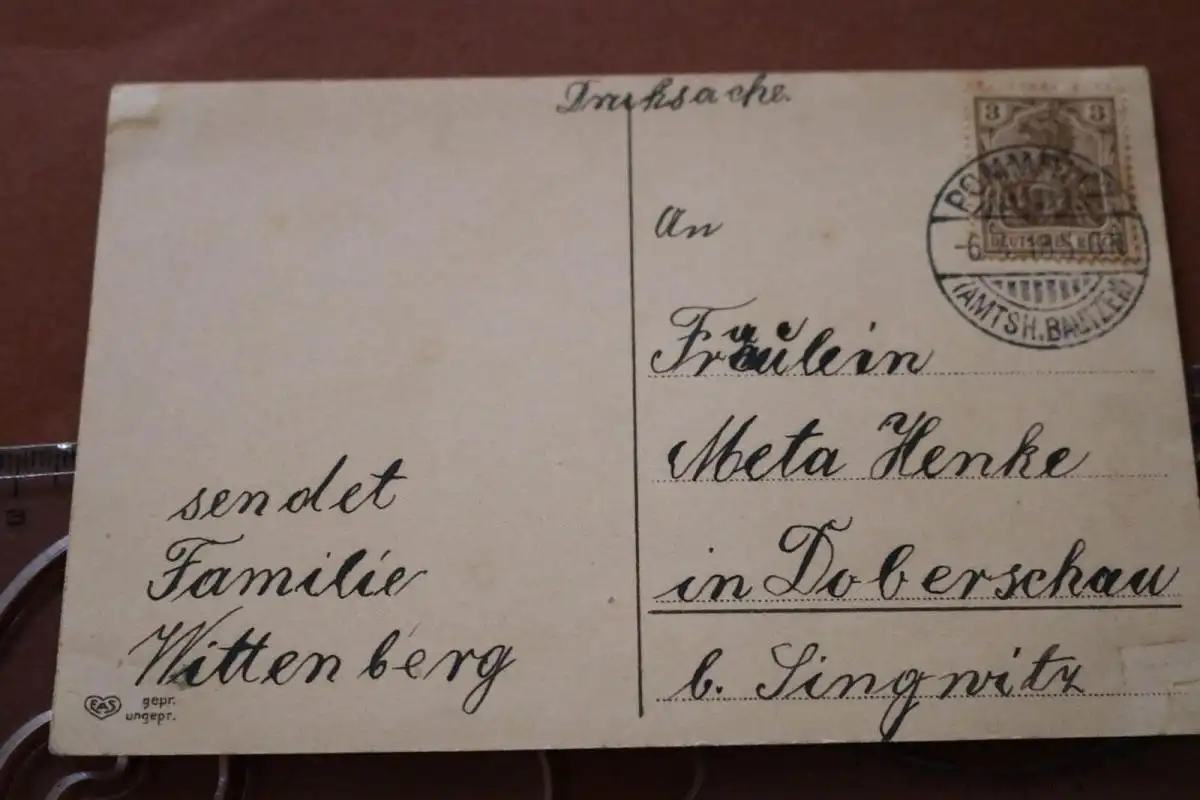 Druksache.
3 3
DEUTSCHES REICH
(AMTSH. BAUTZEN)
An
Fräulein
Meta Henke
in Doberschau
b. Singwitz
sendet
Familie
Wittenberg
EAS
gepr.
ungepr.